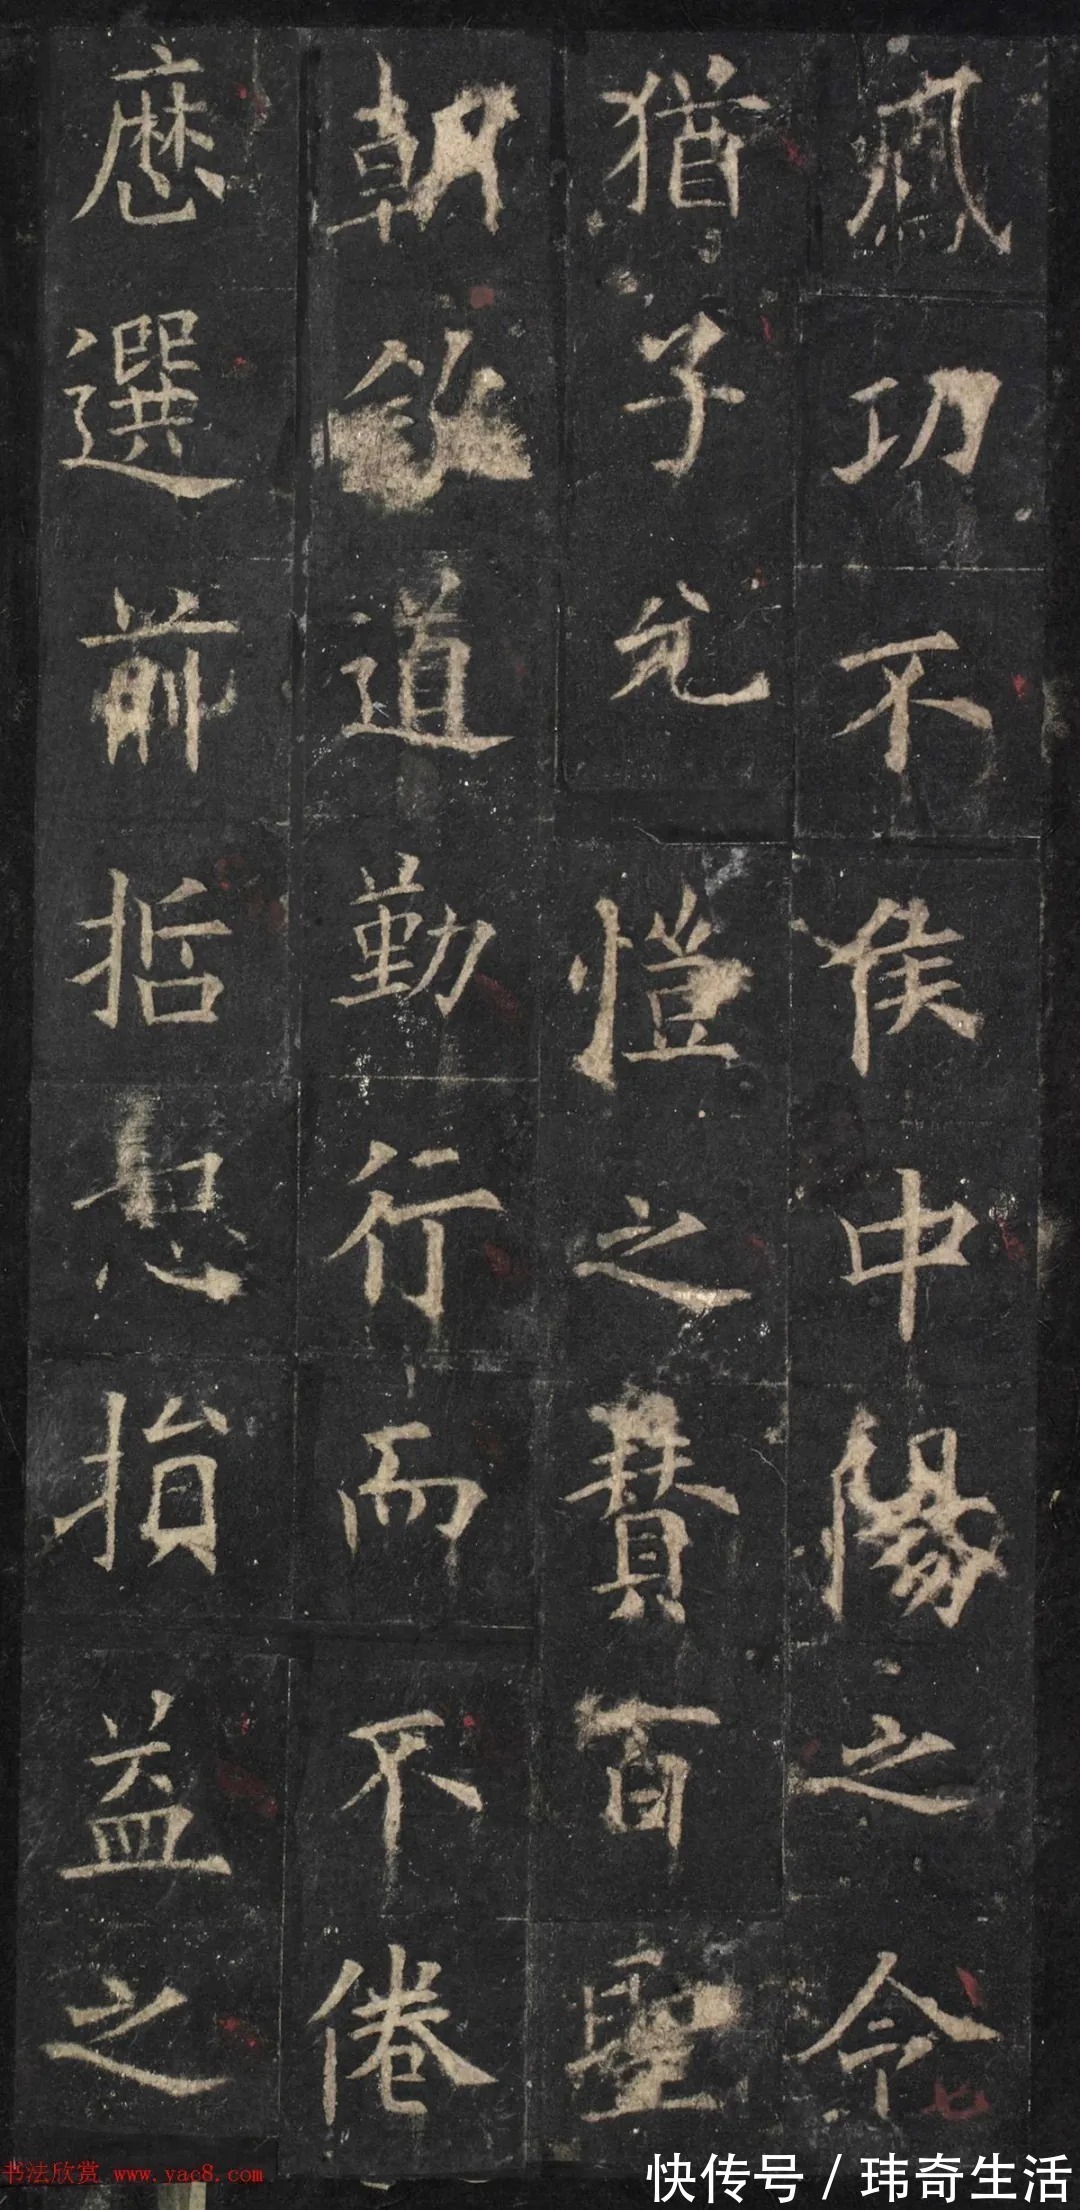 功不侯中陽之令
猶子允愷之賛百聖
朝道勤行而不倦
歷選前哲損益之
书法欣赏 www.yac8.com
快传号 / 玮奇生活